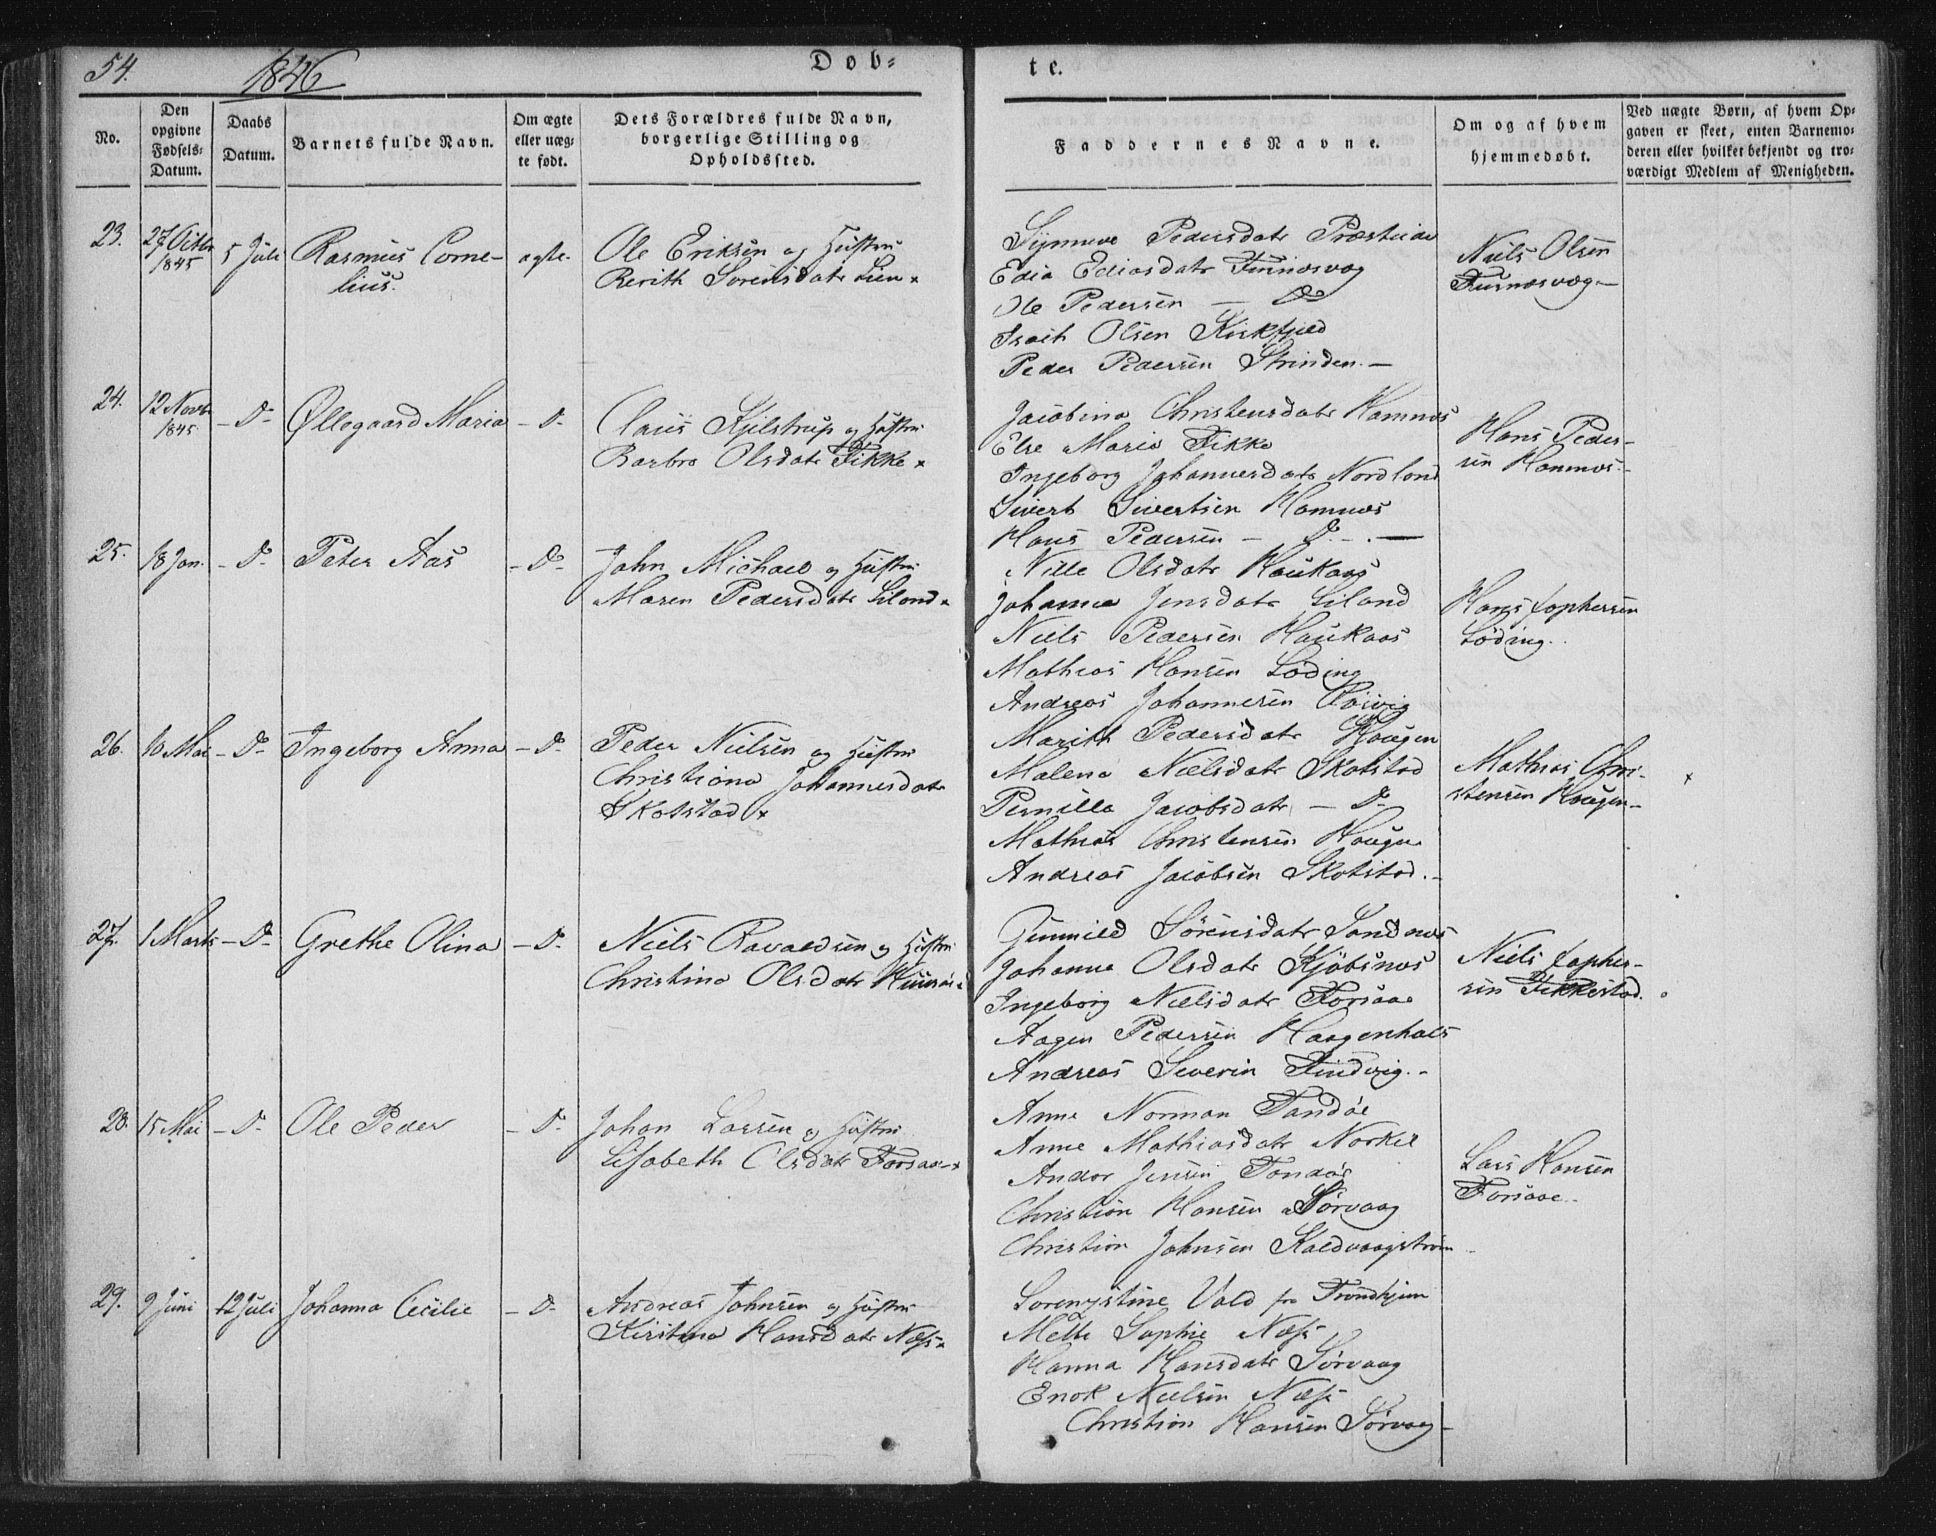 54.
1846
Dob-
te.
No.
Den opgivne Fødsels-Datum.
Daabs Datum.
Barnets fulde Navn.
Om ægte eller uæg-te født.
Dets Forældres fulde Navn, borgerlige Stilling og Opholdssted.
Faddernes Navne.
Om og af hvem hjemmedøbt.
Ved uægte Børn, af hvem Op-gaven er skeet, enten Barnemo-deren eller hvilket bekjendt og tro-værdigt Medlem af Menigheden.
23.
27 Octbr 1845
5 Juli
Rasmus Corne-
lius.
ægte-
Ole Eriksen og Hustru
Berith Sørensdatr Lien
Synneve Pedersdatr
Edia Ediasdatr Furnæsvog
Ole Pedersen — Do
Isach Olsen Kirkfjeld
Peder Pedersen Strinden.—
Niels Olsen
Furnæsvog—
24.
12 Novb. 1845
- Do-
Øllegaard Maria
- Do-
Claus Kjilstrup og Hustru
Barbro Olsdatr Fikke
Jacobina Christensdatr Hamnæs
Else Maria Fikke
Ingeborg Johannesdatr Nordland
Sivert Sivertsen Hamnæs
Hans Pedersen - Do. -
Hans Peder-
sen Hamnæs.-
25.
18 Jan.
- Do-
Peter Aas
- Do-
John Michael og Hustru
Maren Pedersdatr Liland
Nille Olsdatr Haukaas
Johanna Jensdatr Liland
Niels Pedersen Haukaas
Mathias Hansen Løding
Andreas Johannesen
Hans Jophersen
Løding.
26.
10 Mai
- Do-
Ingeborg Anna
- Do-
Peder Nielsen og Hustru
Christiana Johannesdatr
Skotstad
Marith Pedersdatr Hougen
Malena Nielsdatr Skotstad
Pernilla Jacobsdatr — Do
Mathias Christensen Hougen
Andreas Jacobsen Skotstad.-
Mathias Chri-
stensen Hougen-
27.
1 Marts
- Do-
Grethe Olina
- Do-
Niels Ravaldsen og Hustru
Christina Olsdatr
Gunnild Sørensdatr Sandnæs
Johanna Olsdatr Kjøbsnæs
Ingeborg Nielsdatr Forsaae
Aagen Pedersen Haagenhals
Andreas Severin Findvig.-
Niels Jopher-
sen Fikkestad.
28.
15 Mai
- Do-
Ole Peder
- Do-
Johan Larsen og Hustru
Lisabeth Olsdatr Forsaae-
Anne Norman Tandøe
Anne Mathiasdatr Norkil
Andor Jensen Tandøe
Christian Hansen Sørvaag
Christian Johnsen Kaldvaagstrøm
Lars Hansen
Forsaae-
29.
9 Juni
12 Juli
Johanna Cecilie
- Do-
Andreas Johnsen og Hustru
Kirstina Hansdatr Næss
Vold fra Trondhjem
Mette Sophie Næss
Hanna Hansdatr Sørvaag
Enok Nielsen Næss
Christian Hansen Sørvaag-